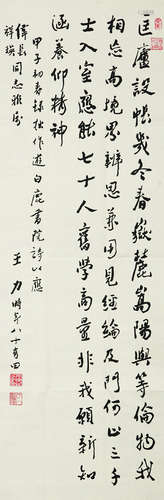 匡廬設帳幾冬春嶽麓嵩陽與等倫物我
相忘高境界辨思兼用見經綸及門何止三千
士入室應餘七十人舊學商量非我願新知
涵養仰精神
甲子初春錄拙作遊白鹿書院詩以應
緯長同志雅屬
祥瑛
王力時年八十有四